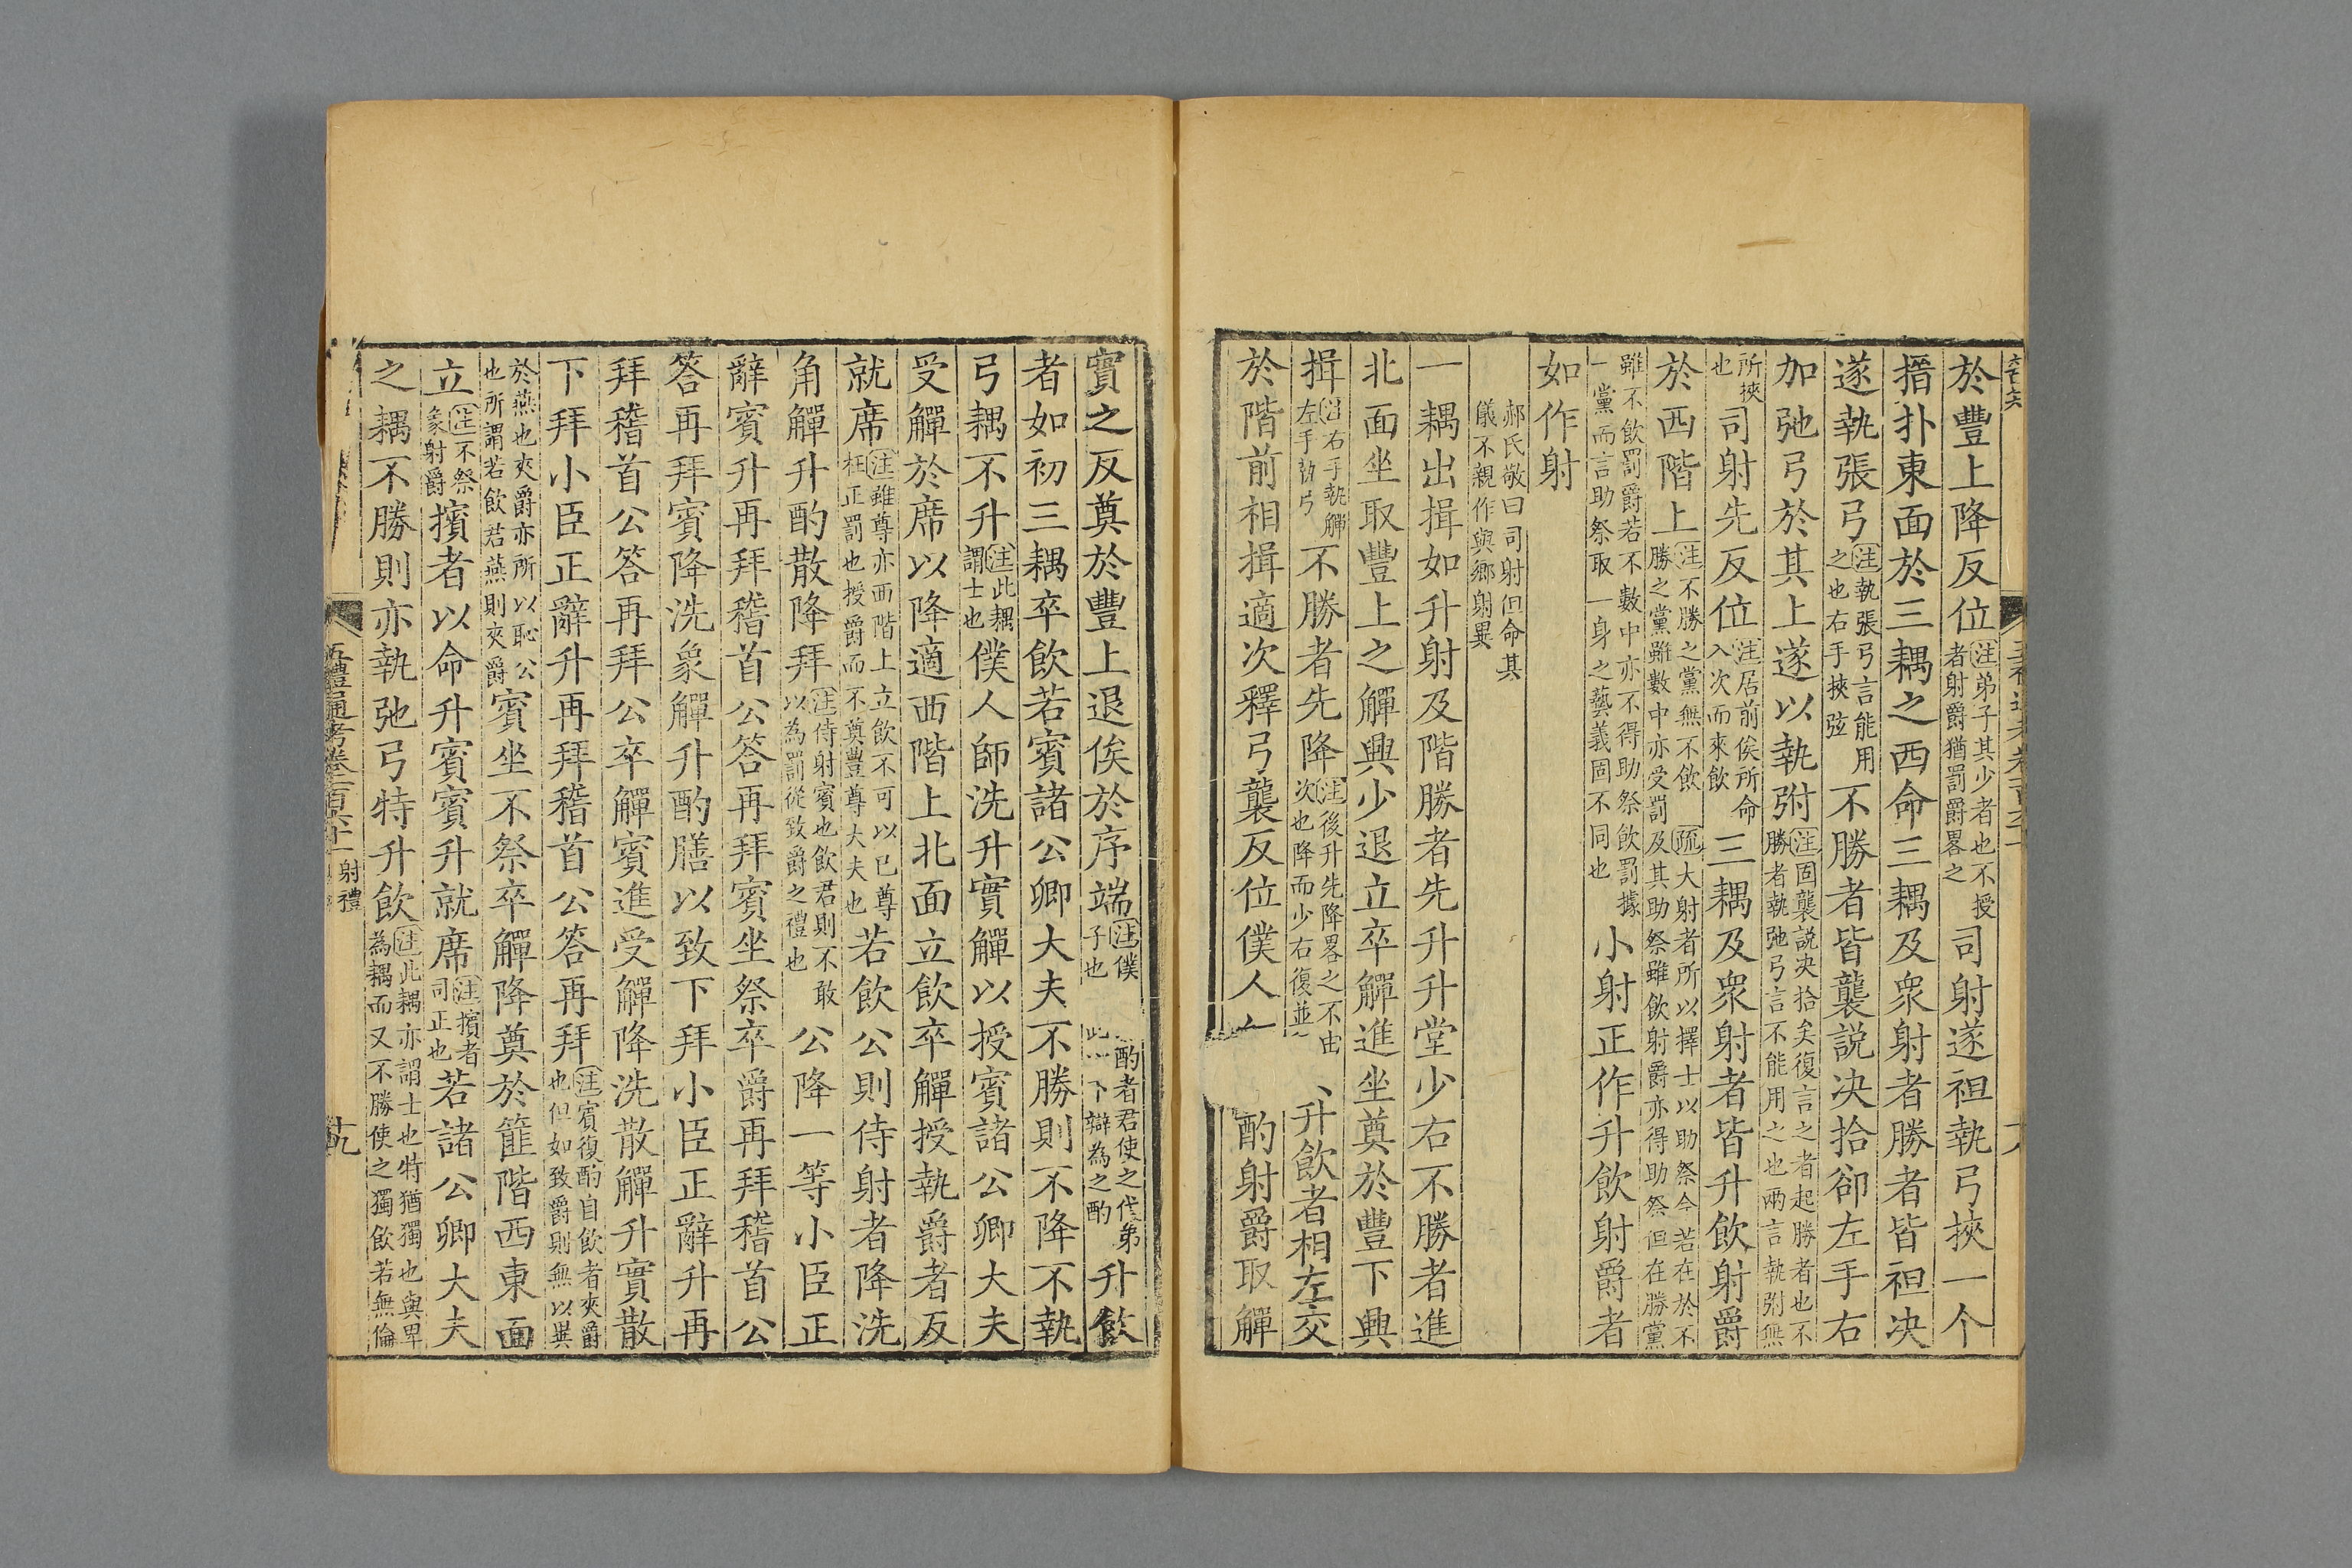 於豐上降反位注弟子其少者也不授者射爵猶罰爵畧之司射遂袒執弓挾一个
搢扑東面於三耦之西命三耦及衆射者勝者皆袒决
遂執張弓注執張弓言能用之也右手挾弦不勝者皆襲説决拾卻左手右
加弛弓於其上遂以執弣注固襲説决拾矣復言之者起勝者也不勝者執弛弓言不能用之也兩言執弣無
所挾也司射先反位注居前俟所命入次而來飲三耦及衆射者皆升飲射爵
於西階上注不勝之黨無不飲勝之黨雖數中亦受罰及其助祭雖飲射爵亦得助祭但在勝黨
雖不飲罰爵若不數中亦不得助祭飲罰據一黨而言助祭取一身之藝義固不同也小射正作升飲射爵者
如作射
郝氏敬曰司射但命其儀不親作與鄉射異
一耦出揖如升射及階勝者先升升堂少右不勝者進
北面坐取豐上之觶興少退立卒觶進坐奠於豐下興
揖注右手執觶左手執弓不勝者先降注後升先降畧之不由次也降而少右復並升飲者相左交
於階前相揖適次釋弓襲反位僕人酌射爵取觶
實之反奠於豐上退俟於序端注僕酌者君使之代弟子也下辯為之酌升飲
者如初三耦卒飲若賓諸公卿大夫不勝則不降不執
弓耦不升注此耦謂士也僕人師洗升實觶以授賓諸公卿大夫
受觶於席以降適西階上北面立飲卒觶授執爵者反
就席注雖尊亦西階上立飲不可以已尊枉正罰也授爵而不奠豐尊大夫也若飲公則侍射者降洗
角觶升酌散降拜注侍射賓也飲君則不敢以為罰從致爵之禮也公降一等小臣正
辭賓升再拜稽首公答再拜賓坐祭卒爵再拜稽首公
答再拜賓降洗象觶升酌膳以致下拜小臣正辭升再
拜稽首公答再拜公卒觶賓進受觶降洗散觶升實散
下拜小臣正辭升再拜稽首公答再拜注賓復酌自飲者夾爵也但如致爵則無以異
於燕也夾爵亦所以恥公也所謂若飲君燕則夾爵賓坐不祭卒觶降奠於篚階西東面
立注不祭象射爵擯者以命升賓賓升就席注擯者司正也若諸公卿大夫
之耦不勝則亦執弛弓特升飲注此耦亦謂士也特猶獨也與卑為耦而又不勝使之獨飲若無倫
五禮通考卷一百六十二 射禮